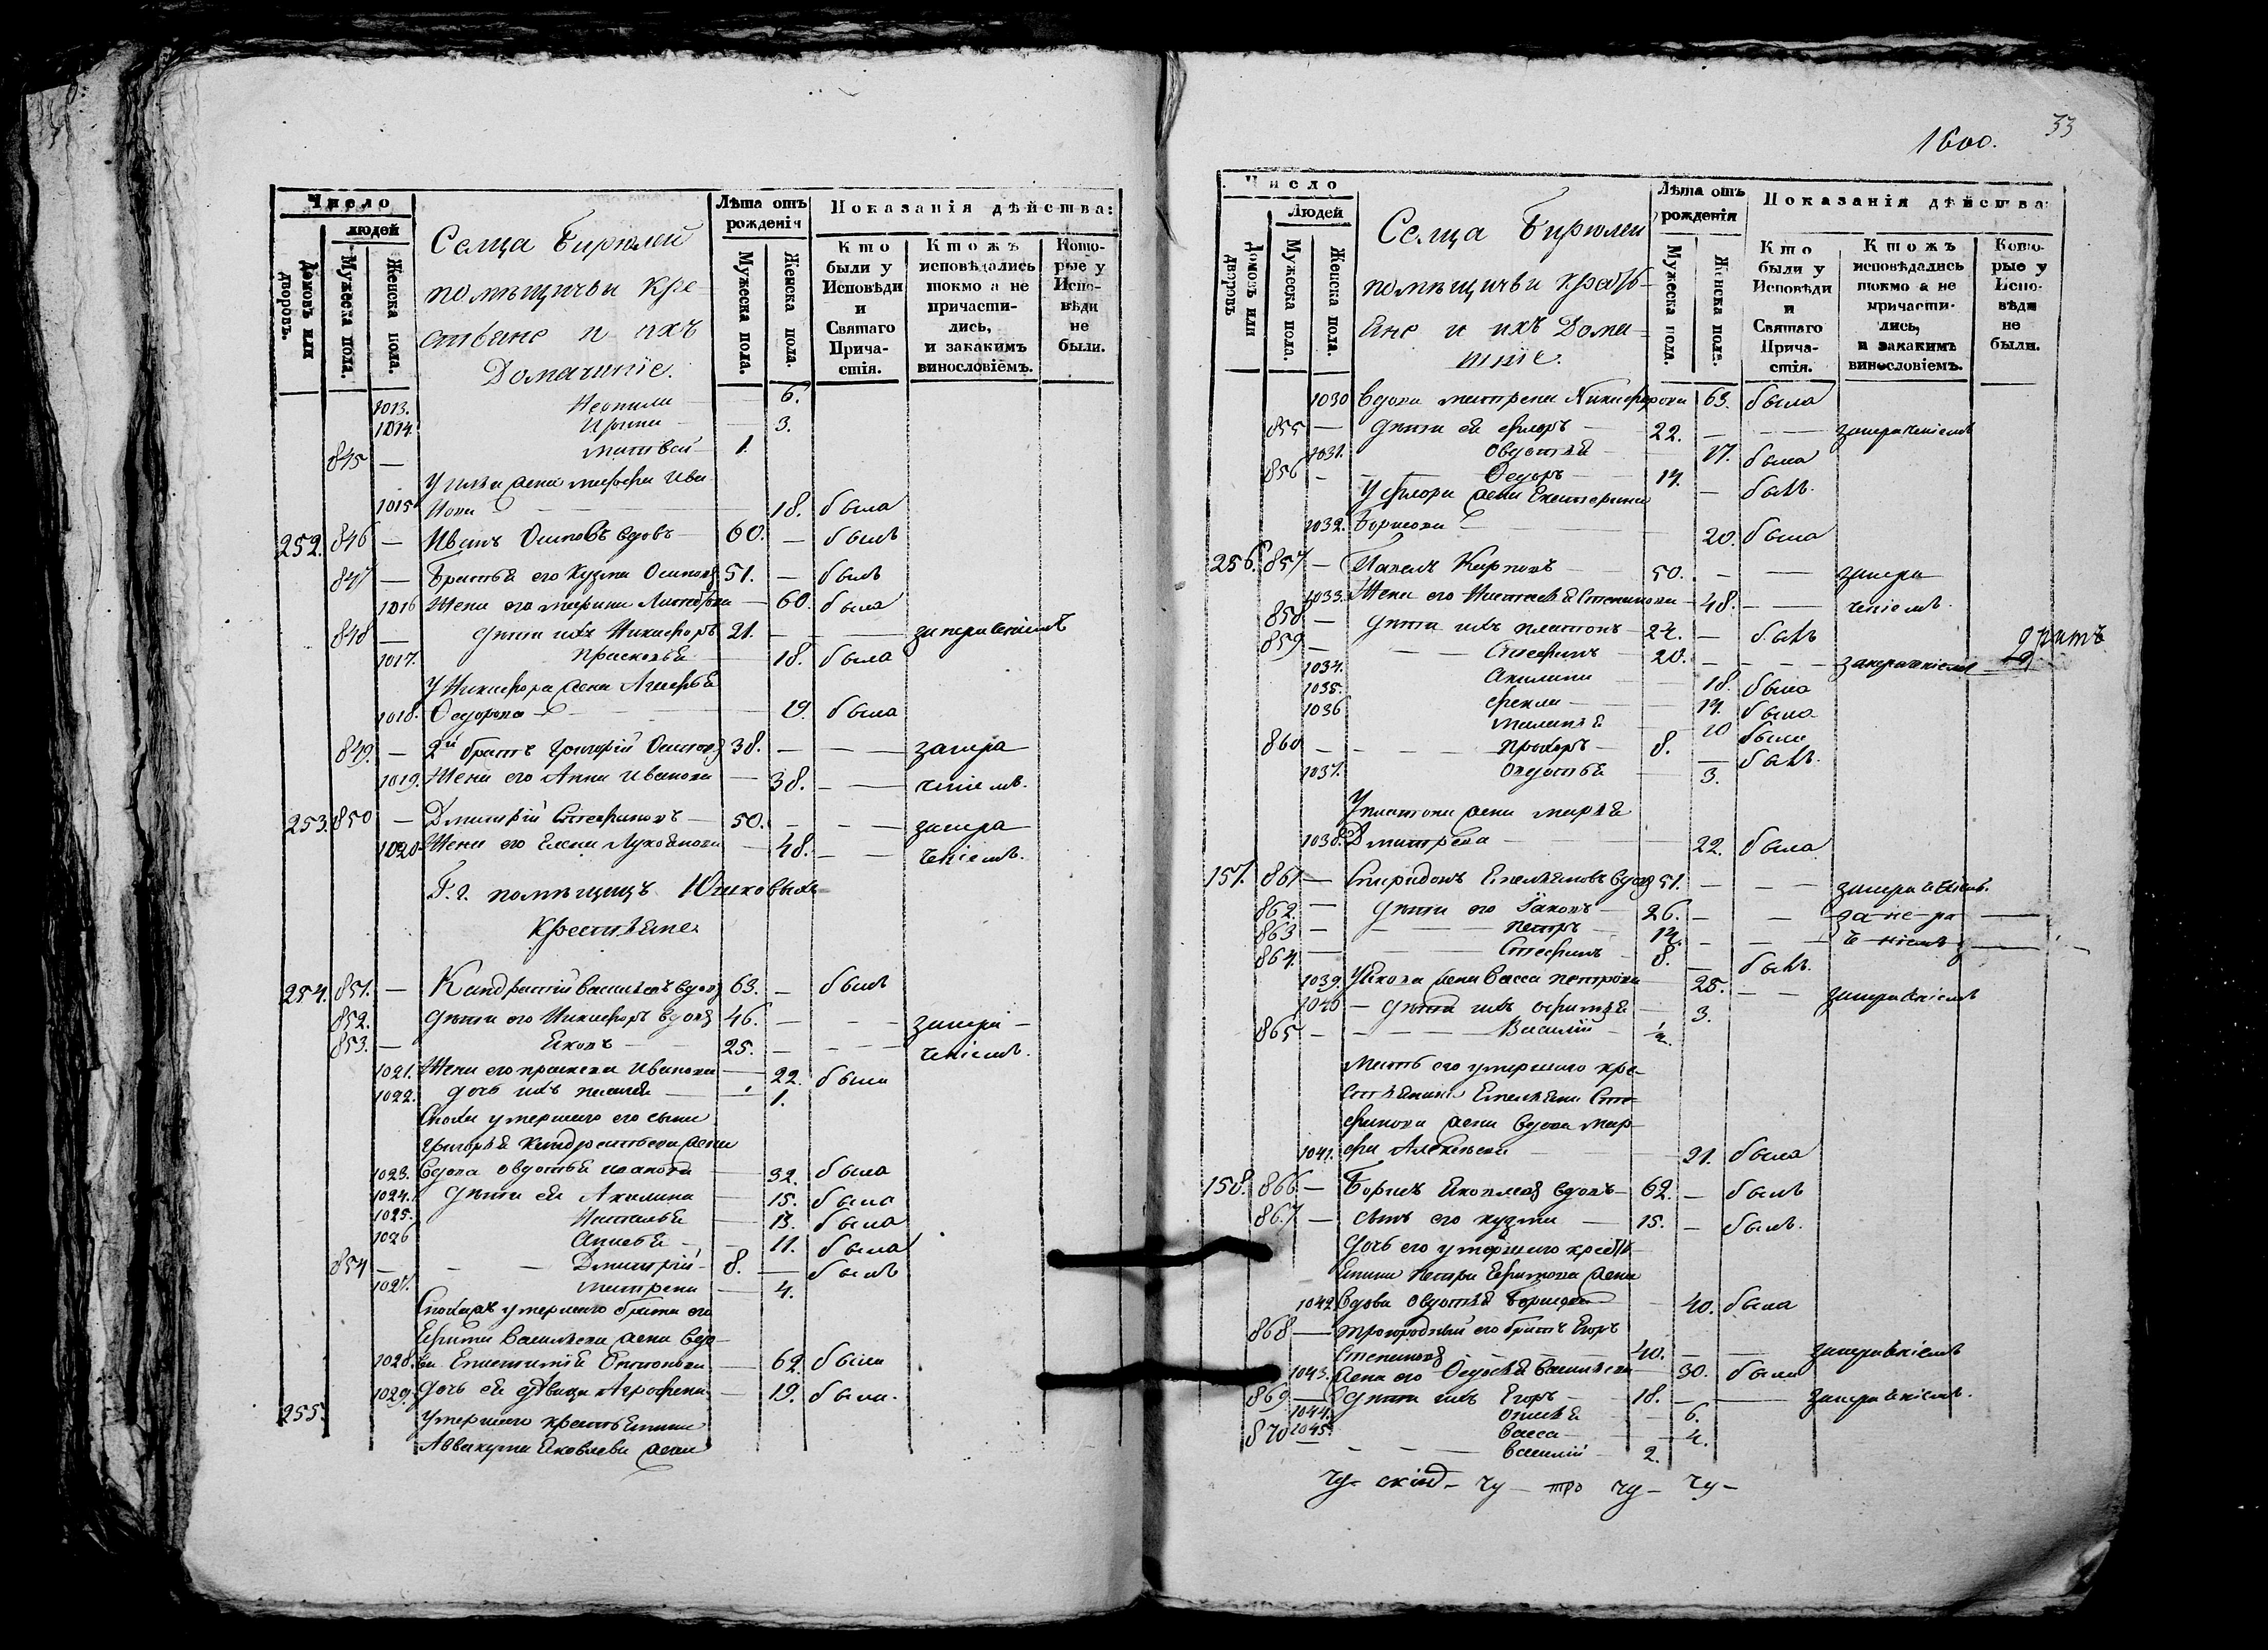 Число
людей
Домовъ или дворовъ.
Мужеска пола.
Женска пола.
Селца Бирюлей
помѣщичьи кре-
стьяне и ихъ
Домашніе.
Лѣта отъ рожденія
Мужеска пола.
Женска пола.
Показанія дѣйства:
Кто были у Исповѣди и Святаго Прича-стія.
Ктожъ исповѣдались токмо а не причасти-лись, и закакимъ винословіемъ.
Кото-рые у Испо-вѣди не были.
1013. Неонила — 6.
1014 Ирина — 3.
845 — Матвей — 1.
У Ильи жена Марфа Ива
1015 нова — 18. была
252. 846 — Иванъ Осиповъ вдовъ — 60. — былъ
847 — Братья его Кузма Осиповъ 51. — былъ
1016 Жена его Марина — 60. была
848 — дѣти ихъ Никифоръ 21. — — занерачениемъ
1017. Прасковья — 18. была
У Никифора жена Агафья
1018. Федорова — 19. была
849. — 2й братъ Григорий Осиповъ 38. — — занера
1019. Жена его Анна Иванова — 38. — — чениемъ.
253. 850 — Дмитрий Стефановъ — 50. — — занера
1020 Жена его Елена Лукоянова — 48. — — чениемъ.
Г. г. помѣщицъ Юшковыхъ
Крестьяне
254. 851. — Кандратий Васильевъ вдовъ 63. — былъ
852. — дѣти его Никифоръ вдовъ 46. — — занера
853. — Яковъ — 25. — — чениемъ.
1021. Жена его Иванова — 22. была
1022. дочь ихъ — 1.
Сноха умершаго его сына
Григорья Кандратьева жена
1023. вдова Овдотья — 32. была
1024. дѣти ея Акилина — 15. была
1025. Наталья — 13. была
1026 Анисья — 11. была
854 — — Дмитрий — 8. — былъ
1027. Матрена — 4.
умершаго брата его
Васильева жена вдо-
1028. ва — 62. была
1029. дочь ея девица Агрофена — 19. была.
255. Умершаго крестьянина
Аввакума Яковлева жена
1600. 33
Число
Людей
Домовъ или дворовъ
Мужеска пола.
Женска пола.
Селца Бирюлеи
помѣщичьи крестьь-
яне и ихъ Дома-
шніе.
Лѣта отъ рожденія
Мужеска пола.
Женска пола.
Показанія дѣйства:
Кто были у Исповѣди и Святаго Прича-стія.
Ктожъ исповѣдались токмо а не причасти-лись, и закакимъ винословіемъ.
Кото-рые у Испо-вѣди не были.
1030 вдова Матрена Никифорова 63. была
855 — дѣти ея Флоръ — 22. — — занерачениемъ
1031. Овдотья — 17. была
856 — Федоръ — 14. — былъ.
У Флора жена Екатерина
1032. Борисова — 20. была
256. 857 — Павелъ Карповъ — 50. — — занера
1033. Жена его Наталья Степанова — 48. — — чениемъ.
858 — дѣти ихъ Платонъ — 24. — былъ
859 — — Стефанъ — 20. — — занерачениемъ
1034. Акилина — 18. была
1035. Фекла — 14. была
1036 Маланья — 10 была
860 — — Прохоръ — 8. — былъ.
1037. Овдотья — 3.
У Платона жена Марья
1038. Дмитрева — 22. была
157. 861 — Спиридонъ Емельяновъ вдовъ 51. — — занерачениемъ.
862. — дѣти его Іаковъ — 26. — — за не ра
863 — — Петръ — 14. — — чениемъ
864. — Стефанъ — 8. — былъ.
1039. У Якова жена Васса Петрова — 25. — — занерачениемъ
1040 — дѣти ихъ — 3.
865 — — Василий — ½.
его умершаго кре-
стьянина Емельяна Сте-
фанова жена вдова Мар-
1041. фа Алексѣева — 21. была
158. 866 — Борисъ Яковлевъ вдовъ — 62. — былъ
867 — сынъ его Кузма — 15. — былъ.
дочь его умершаго кресть-
янина Петра Ефимова жена
1042 вдова Овдотья Борисова — 40. была
868 — троюродный его братъ Егоръ
Степановъ — 40. — — занерачениемъ
1043. Жена его Федосья Васильева — 30. была
869 — дѣти ихъ Егоръ — 18. — — занерачениемъ.
1044. — 6.
1045. Васса — 4.
870 — — Василий — 2.